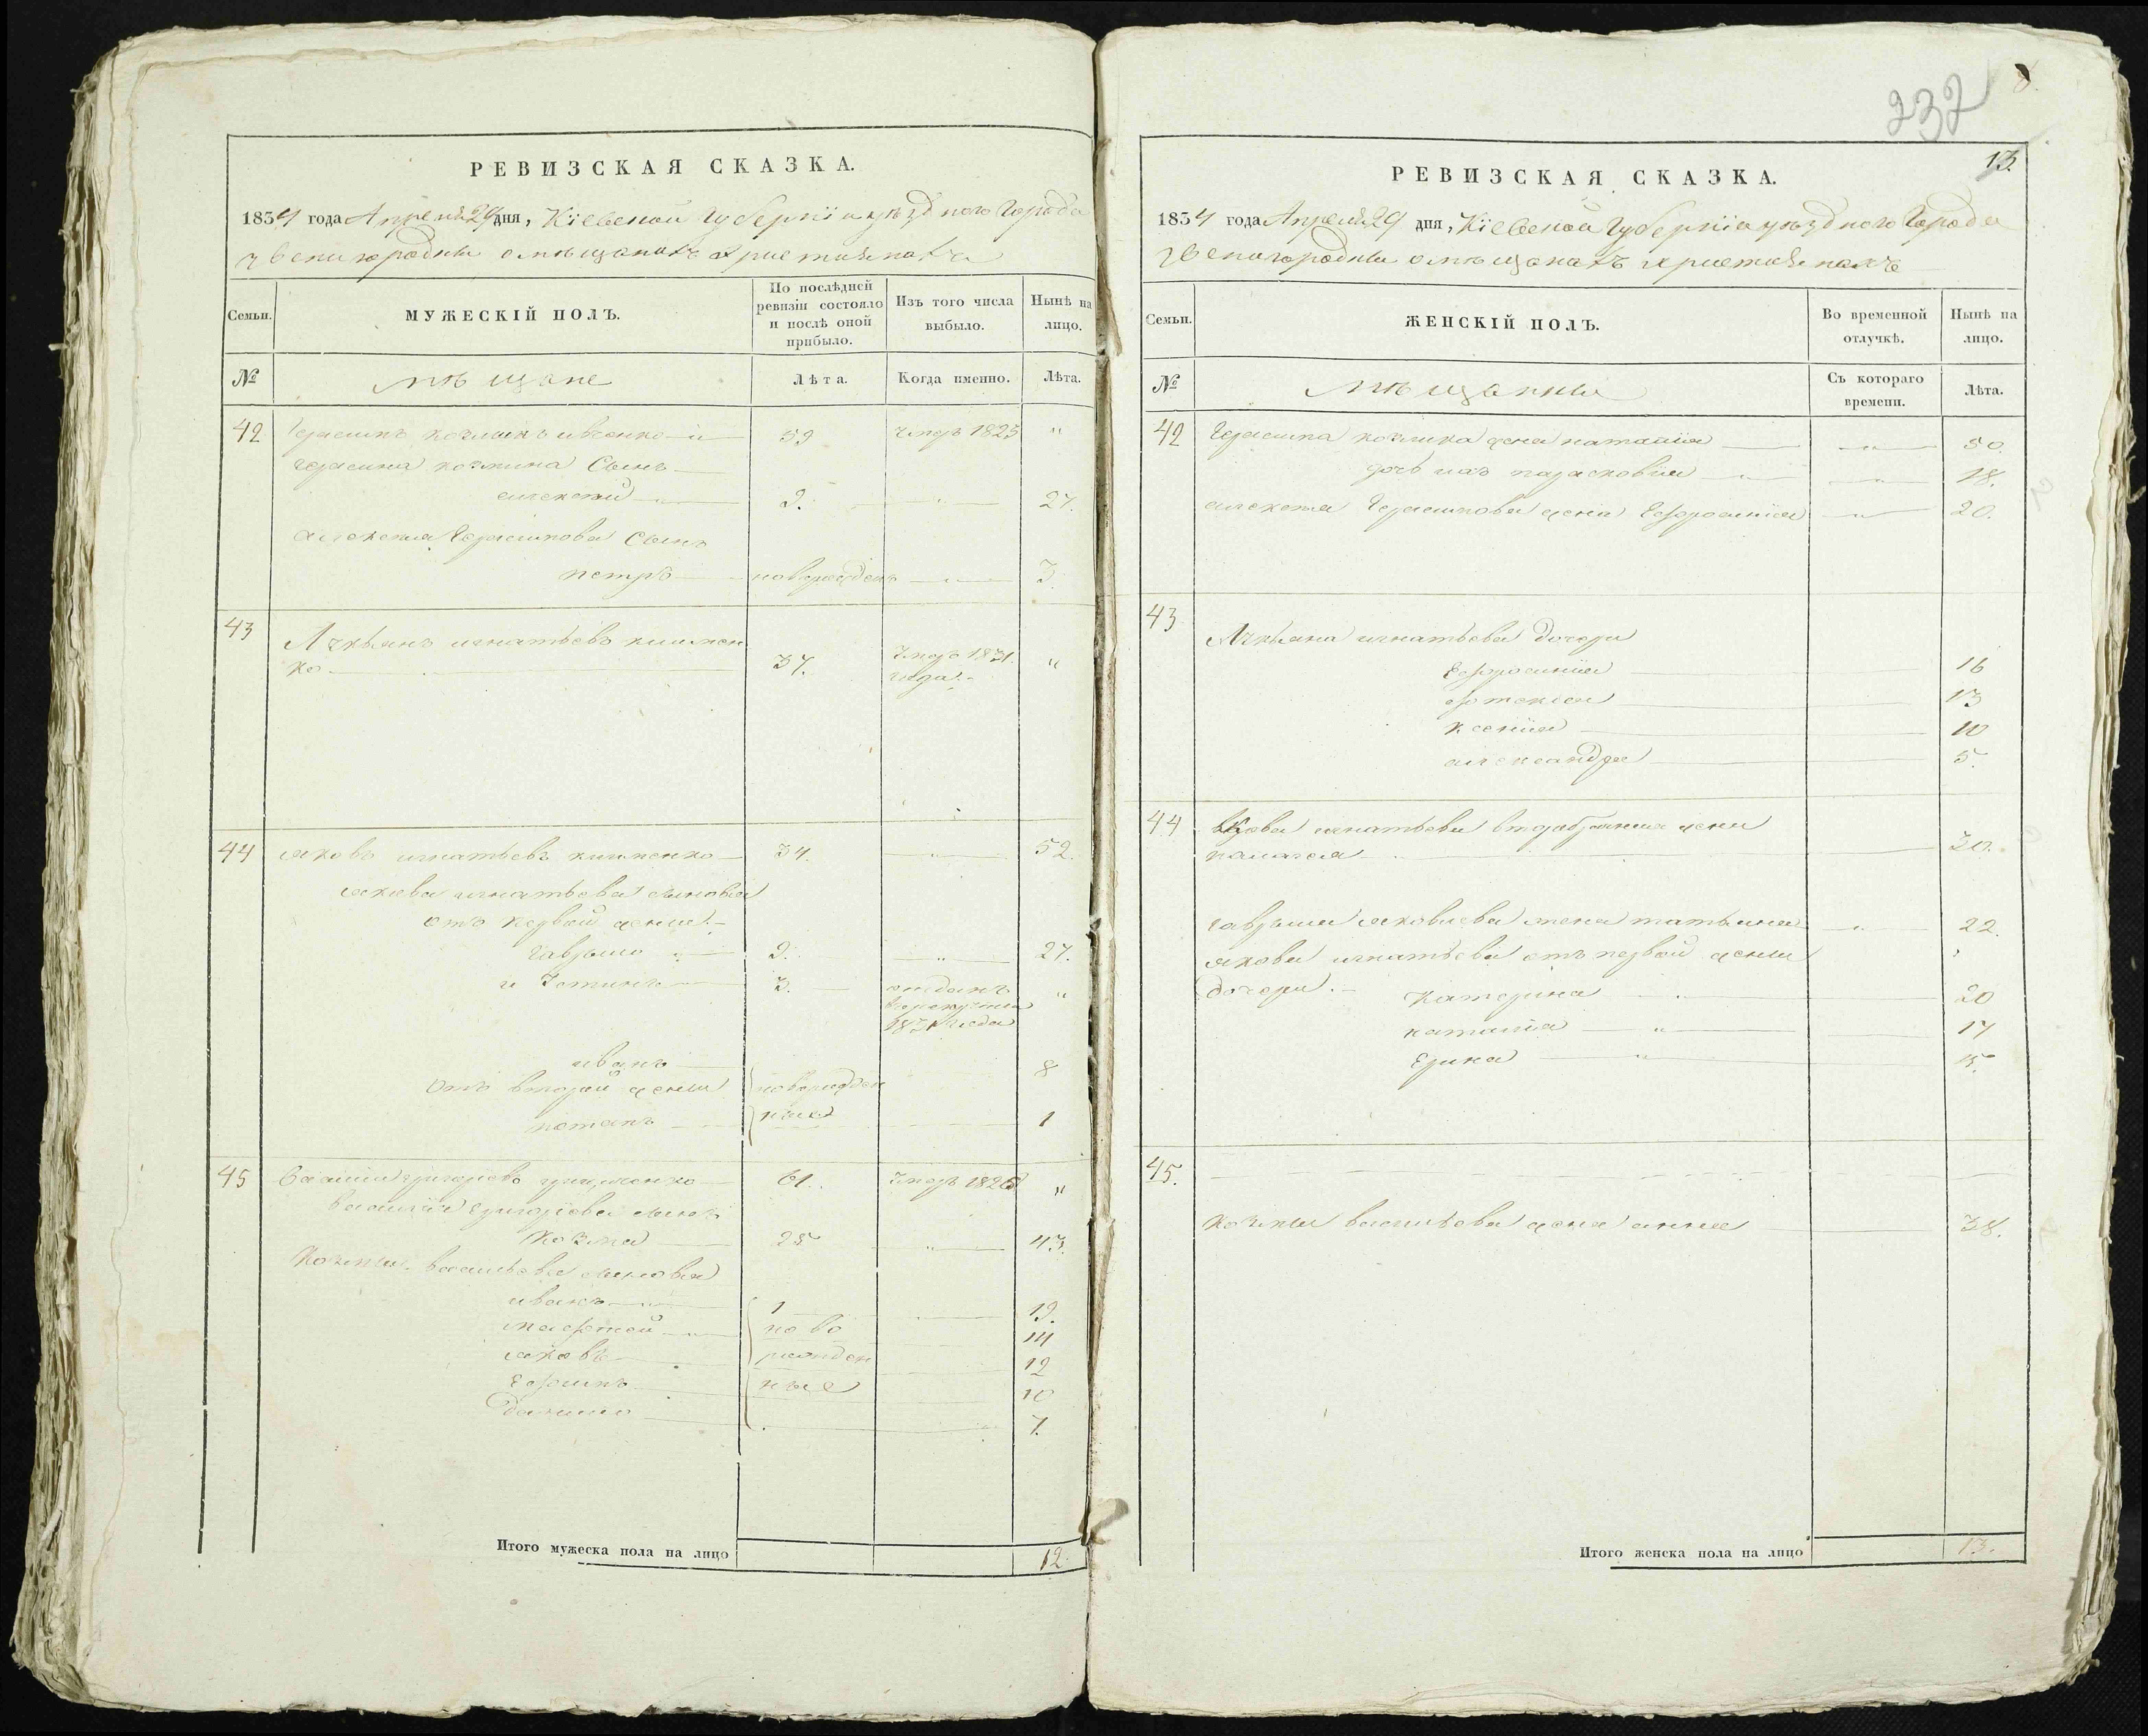 РЕВИЗСКАЯ СКАЗКА.
1834 года Апреля 29 дня, Кіевской Губерніи уѣзднаго Города
Звенигородки о мѣщанахъ христіянахъ
Семьи.
МУЖЕСКІЙ ПОЛЪ.
По послѣдней ревизіи состояло и послѣ оной прибыло.
Изъ того числа выбыло.
Нынѣ на лицо.
№
мѣщане
Лѣта.
Когда именно.
Лѣта.
42 Герасимъ козминъ ивченко 59 умеръ 1825 "
Герасима козмина Сынъ
алексей 9. " 27.
алексея Герасимова Сынъ
петръ новорожденъ " 3.
43 Лукьянъ игнатьевъ климен
ко 37. Умеръ 1831. года "
44 яковъ игнатьевъ клименко 34. 52.
якова игнатьева сыновья
отъ первой жены
гаврыло 9. " 27.
и Устинъ 3. отданъ в рекруты 1831 года "
иванъ 8
отъ второй жены новорожден
потапъ ные 1
45 Василій григорьевъ 61. Умеръ 1826 "
василия григорьева сынъ
козма 25 " 43.
козмы васильева сыновья
иванъ 1 19.
матфей ново 14
яковъ рожден 12
ефимъ ные 10
данило 7.
Итого мужеска пола на лицо 12.
232
13.
РЕВИЗСКАЯ СКАЗКА.
1834 года Апреля 29 дня, Кіевской Губерніи уѣзднаго Города
Звенигородки о мѣщанахъ христіянахъ
Семьи.
ЖЕНСКІЙ ПОЛЪ.
Во временной отлучкѣ.
Нынѣ на лицо.
№
мѣщанки
Съ котораго времени.
Лѣта.
42 Герасима козмина жена наталія " 50.
дочь ихъ парасковія " 18.
алексея Герасимова жена Ефросинія " 20.
43
Лукьяна игнатьева дочери
Ефросинія 16
фотекія 13
ксенія 10
александра 5.
44 якова игнатьева втораобрачная жена
палагея 30.
гаврыла яковлева жена татьяна " 22.
якова игнатьева отъ первой жены
дочери. Катерина 20
наталія " 17
Ерина " 15.
45.
козмы васильева жена анна 38.
Итого женска пола на лицо 13.